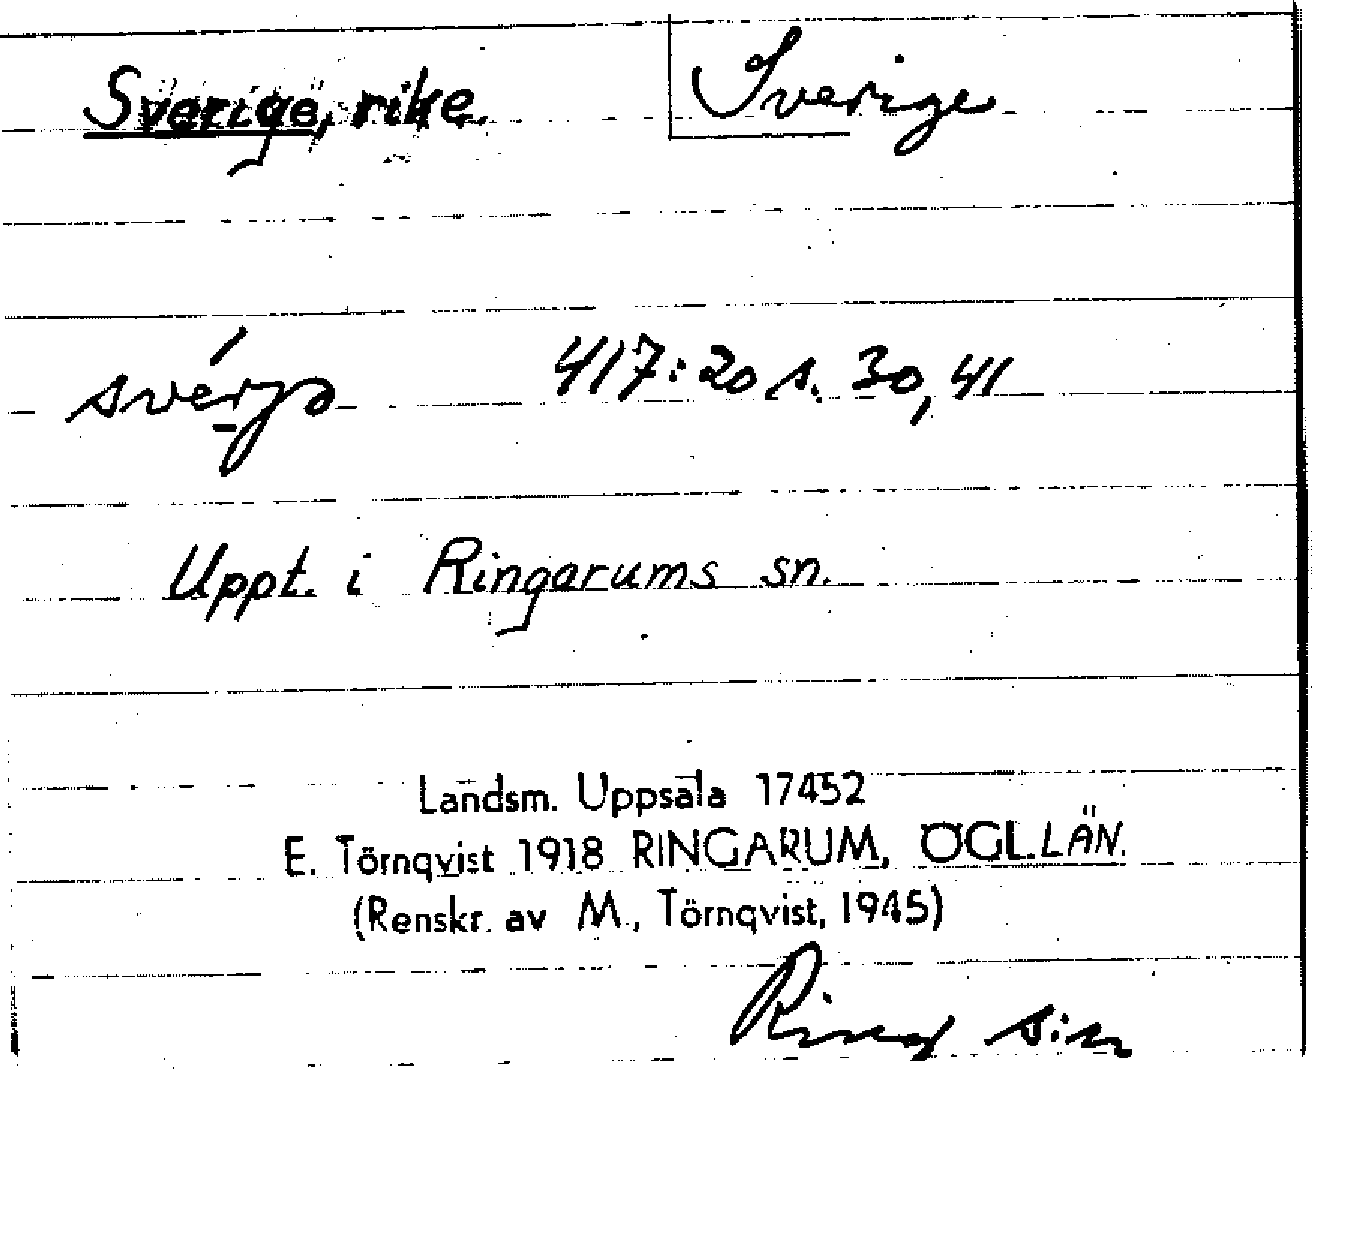 Sverige, rike. Sverige
svérjə 417:20 s. 30, 41
Uppt. i Ringarums sn.
Landsm. Uppsala 17452
E. Törnqvist 1918 RINGARUM, ÖGL. LÄN.
(Renskr. av M. Törnqvist, 1945)